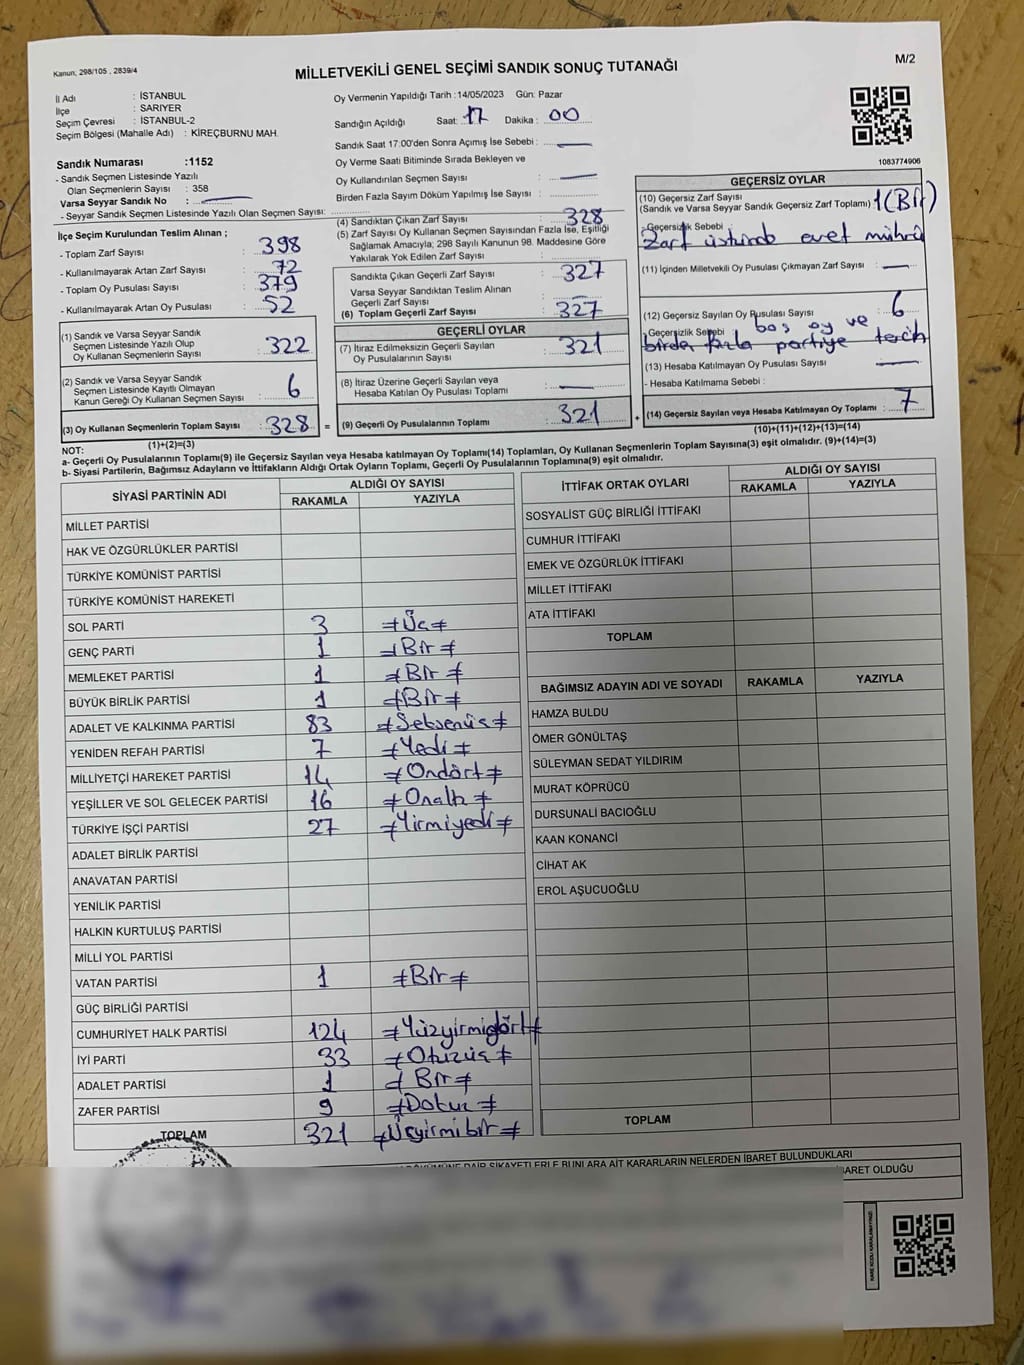 Kanun, 298/105 , 2839/4
MİLLETVEKİLİ GENEL SEÇİMİ SANDIK SONUÇ TUTANAĞI
M/2
İl Adı : İSTANBUL
İlçe : SARIYER
Seçim Çevresi : İSTANBUL-2
Seçim Bölgesi (Mahalle Adı) : KİREÇBURNU MAH.
Sandık Numarası :1152
- Sandık Seçmen Listesinde Yazılı
Olan Seçmenlerin Sayısı : 358
Varsa Seyyar Sandık No :
- Seyyar Sandık Seçmen Listesinde Yazılı Olan Seçmen Sayısı:
İlçe Seçim Kurulundan Teslim Alınan ;
- Toplam Zarf Sayısı 398
- Kullanılmayarak Artan Zarf Sayısı : 72
- Toplam Oy Pusulası Sayısı : 379
- Kullanılmayarak Artan Oy Pusulası : 52
(1) Sandık ve Varsa Seyyar Sandık
Seçmen Listesinde Yazılı Olup
Oy Kullanan Seçmenlerin Sayısı : 322
(2) Sandık ve Varsa Seyyar Sandık
Seçmen Listesinde Kayıtlı Olmayan
Kanun Gereği Oy Kullanan Seçmen Sayısı : 6
(3) Oy Kullanan Seçmenlerin Toplam Sayısı : 328
(1)+(2)=(3)
Oy Vermenin Yapıldığı Tarih :14/05/2023 Gün: Pazar
Sandığın Açıldığı Saat: 17 Dakika : 00
Sandık Saat 17:00'den Sonra Açımış İse Sebebi :
Oy Verme Saati Bitiminde Sırada Bekleyen ve
Oy Kullandırılan Seçmen Sayısı :
Birden Fazla Sayım Döküm Yapılmış İse Sayısı :
(4) Sandıktan Çıkan Zarf Sayısı : 328
(5) Zarf Sayısı Oy Kullanan Seçmen Sayısından Fazla İse, Eşitliği
Sağlamak Amacıyla; 298 Sayılı Kanunun 98. Maddesine Göre
Yakılarak Yok Edilen Zarf Sayısı :
Sandıkta Çıkan Geçerli Zarf Sayısı : 327
Varsa Seyyar Sandıktan Teslim Alınan
Geçerli Zarf Sayısı :
(6) Toplam Geçerli Zarf Sayısı : 327
GEÇERLİ OYLAR
(7) İtiraz Edilmeksizin Geçerli Sayılan
Oy Pusulalarının Sayısı : 321
(8) İtiraz Üzerine Geçerli Sayılan veya
Hesaba Katılan Oy Pusulaları Toplamı :
= (9) Geçerli Oy Pusulalarının Toplamı : 321 +
1083774906
GEÇERSİZ OYLAR
(10) Geçersiz Zarf Sayısı
(Sandık ve Varsa Seyyar Sandık Geçersiz Zarf Toplamı) 1 (Bir)
- Geçersizlik Sebebi
Zarf üstünde evet mührü
(11) İçinden Milletvekili Oy Pusulası Çıkmayan Zarf Sayısı :
(12) Geçersiz Sayılan Oy Pusulası Sayısı : 6
- Geçerizlik Sebebi boş oy ve
birden fazla partiye tercih
(13) Hesaba Katılmayan Oy Pusulası Sayısı :
- Hesaba Katılmama Sebebi :
(14) Geçersiz Sayılan veya Hesaba Katılmayan Oy Toplamı : 7
(10)+(11)+(12)+(13)=(14)
NOT:
a- Geçerli Oy Pusulalarının Toplamı(9) ile Geçersiz Sayılan veya Hesaba Katılmayan Oy Toplamı(14) Toplamları, Oy Kullanan Seçmenlerin Toplam Sayısına(3) eşit olmalıdır. (9)+(14)=(3)
b- Siyasi Partilerin, Bağımsız Adayların ve İttifakların Aldığı Ortak Oyların Toplamı, Geçerli Oy Pusulalarının Toplamına(9) eşit olmalıdır.
SİYASİ PARTİNİN ADI ALDIĞI OY SAYISI
RAKAMLA YAZIYLA
MİLLET PARTİSİ
HAK VE ÖZGÜRLÜKLER PARTİSİ
TÜRKİYE KOMÜNİST PARTİSİ
TÜRKİYE KOMÜNİST HAREKETİ
SOL PARTİ 3 ≠Üç≠
GENÇ PARTİ 1 ≠Bir≠
MEMLEKET PARTİSİ 1 ≠Bir≠
BÜYÜK BİRLİK PARTİSİ 1 ≠Bir≠
ADALET VE KALKINMA PARTİSİ 83 ≠Seksenüç≠
YENİDEN REFAH PARTİSİ 7 ≠Yedi≠
MİLLİYETÇİ HAREKET PARTİSİ 14 ≠Ondört≠
YEŞİLLER VE SOL GELECEK PARTİSİ 16 ≠Onaltı≠
TÜRKİYE İŞÇİ PARTİSİ 27 ≠Yirmiyedi≠
ADALET BİRLİK PARTİSİ
ANAVATAN PARTİSİ
YENİLİK PARTİSİ
HALKIN KURTULUŞ PARTİSİ
MİLLİ YOL PARTİSİ
VATAN PARTİSİ 1 ≠Bir≠
GÜÇ BİRLİĞİ PARTİSİ
CUMHURİYET HALK PARTİSİ 124 ≠Yüzyirmidört≠
İYİ PARTİ 33 ≠Otuzüç≠
ADALET PARTİSİ 1 ≠Bir≠
ZAFER PARTİSİ 9 ≠Dokuz≠
TOPLAM 321 ≠Üçyirmibir≠
İTTİFAK ORTAK OYLARI ALDIĞI OY SAYISI
RAKAMLA YAZIYLA
SOSYALİST GÜÇ BİRLİĞİ İTTİFAKI
CUMHUR İTTİFAKI
EMEK VE ÖZGÜRLÜK İTTİFAKI
MİLLET İTTİFAKI
ATA İTTİFAKI
TOPLAM
BAĞIMSIZ ADAYIN ADI VE SOYADI RAKAMLA YAZIYLA
HAMZA BULDU
ÖMER GÖNÜLTAŞ
SÜLEYMAN SEDAT YILDIRIM
MURAT KÖPRÜCÜ
DURSUNALİ BACIOĞLU
KAAN KONANCİ
CİHAT AK
EROL AŞUCUOĞLU
TOPLAM
DÖKÜMÜNE DAİR ŞİKAYETLERLE BUNLARA AİT KARARLARIN NELERDEN İBARET BULUNDUKLARI
İBARET OLDUĞU
KARE KODU KARALAMAYINIZ!